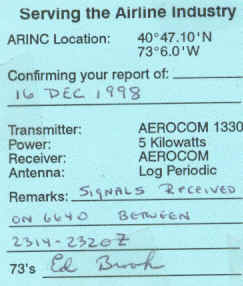 Serving the Airline Industry
ARINC Location: 40°47.10'N
73°6.0'W
Confirming your report of:
16 DEC 1998
Transmitter: AEROCOM 1330
Power: 5 Kilowatts
Receiver: AEROCOM
Antenna: Log Periodic
Remarks: SIGNALS RECEIVED
ON 6640 BETWEEN
2314-2320Z
73's Ed Brook